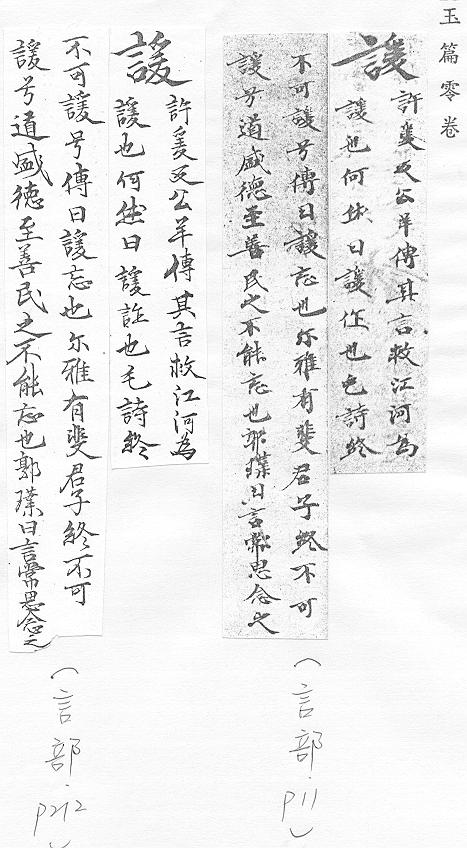 玉篇零卷
諼 許爰反公羊傳其言救江河為
諼也何休曰諼詐也毛詩終
不可諼兮傳曰諼忘也尔雅有斐君子終不可
諼兮道盛德至善民之不能忘也郭璞曰言常思念之
(言部.p11)
諼 許爰反公羊傳其言救江河為
諼也何休曰諼詐也毛詩終
不可諼兮傳曰諼忘也尔雅有斐君子終不可
諼兮道盛德至善民之不能忘也郭璞曰言常思念之
(言部.p212)